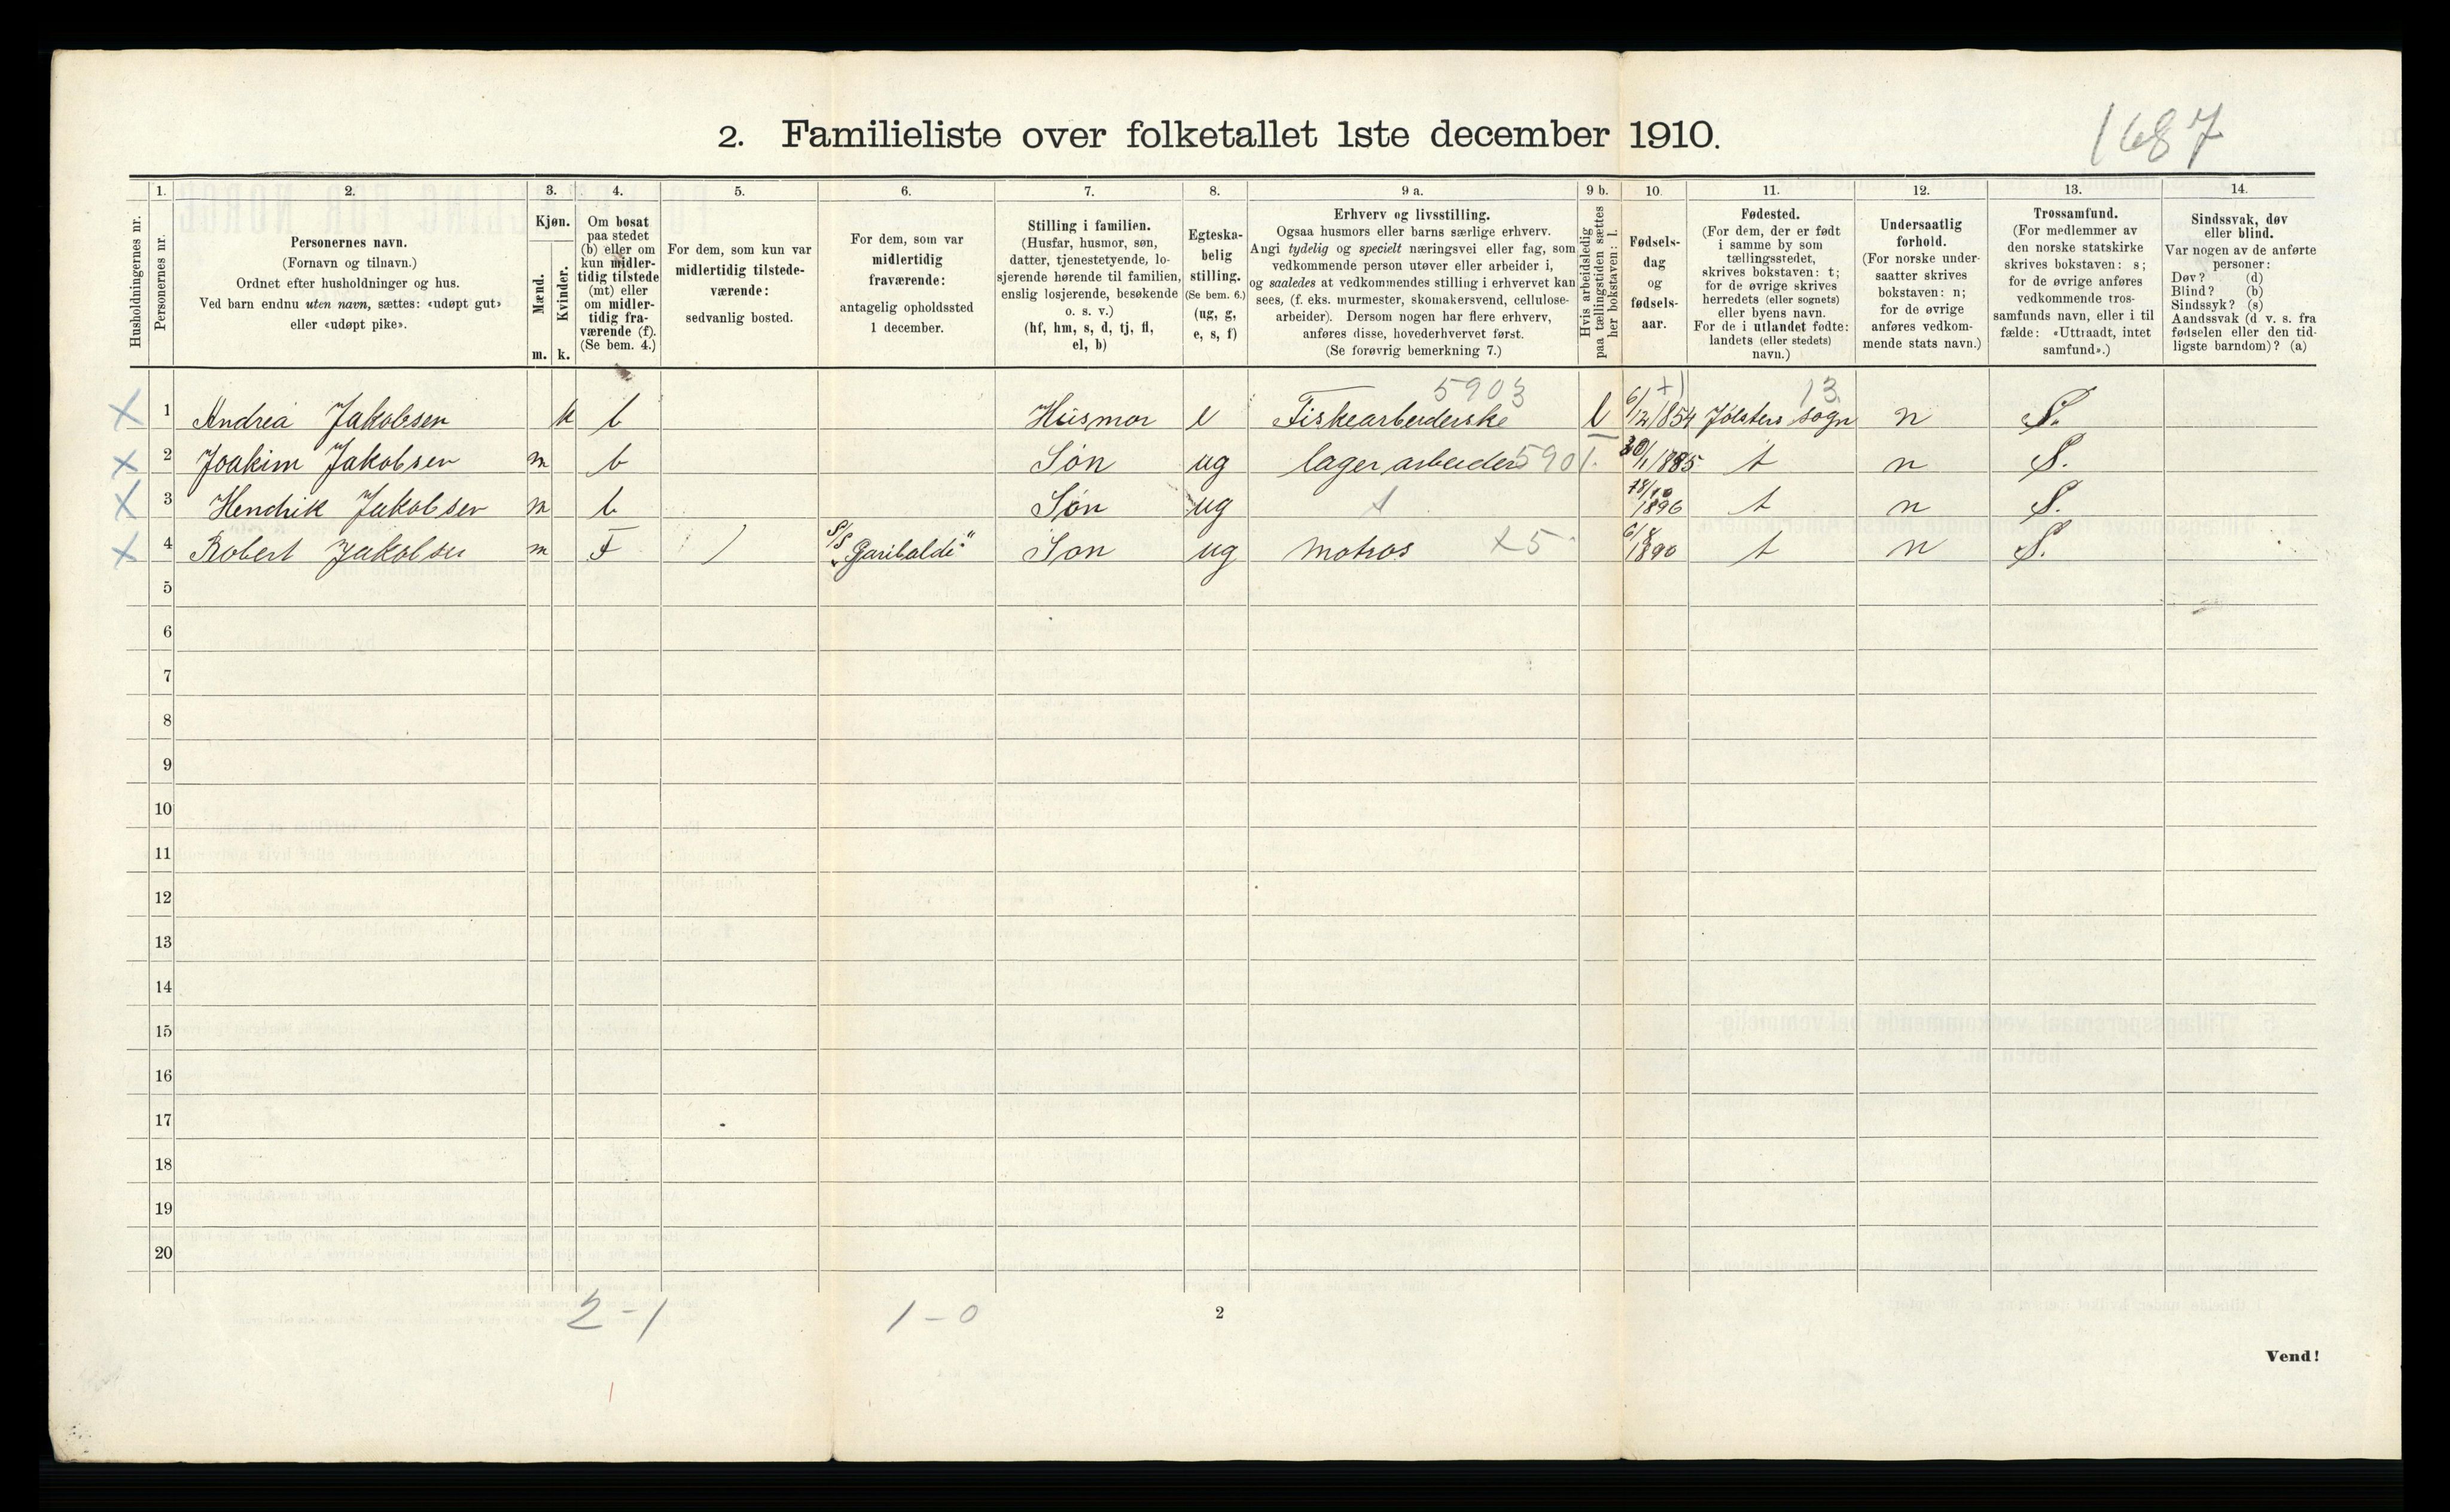 1687
2. Familieliste over folketallet 1ste december 1910.
Husholdningernes nr.
1. Personernes nr.
2. Personernes navn.
(Fornavn og tilnavn.)
Ordnet efter husholdninger og hus.
Ved barn endnu uten navn, sættes: «udøpt gut»
eller «udøpt pike».
3. Kjøn.
Mænd. m.
Kvinder. k.
4. Om bosat
paa stedet
(b) eller om
kun midler-
tidig tilstede
(mt) eller
om midler-
tidig fra-
værende (f).
(Se bem. 4.)
5. For dem, som kun var
midlertidig tilstede-
værende:
sedvanlig bosted.
6. For dem, som var
midlertidig
fraværende:
antagelig opholdssted
1 december.
7. Stilling i familien.
(Husfar, husmor, søn,
datter, tjenestetyende, lo-
sjerende hørende til familien,
enslig losjerende, besøkende
o. s. v.)
(hf, hm, s, d, tj, fl,
el, b)
8. Egteska-
belig
stilling.
(Se bem. 6.)
(ug, g,
e, s, f)
9 a. Erhverv og livsstilling.
Ogsaa husmors eller barns særlige erhverv.
Angi tydelig og specielt næringsvei eller fag, som
vedkommende person utøver eller arbeider i,
og saaledes at vedkommendes stilling i erhvervet kan
sees, (f. eks. murmester, skomakersvend, cellulose-
arbeider). Dersom nogen har flere erhverv,
anføres disse, hovederhvervet først.
(Se forøvrig bemerkning 7.)
9 b. Hvis arbeidsledig
paa tællingstiden sættes
her bokstaven: l.
10. Fødsels-
dag
og
fødsels-
aar.
11. Fødested.
(For dem, der er født
i samme by som
tællingsstedet,
skrives bokstaven: t;
for de øvrige skrives
herredets (eller sognets)
eller byens navn.
For de i utlandet fødte:
landets (eller stedets)
navn.)
12. Undersaatlig
forhold.
(For norske under-
saatter skrives
bokstaven: n;
for de øvrige
anføres vedkom-
mende stats navn.)
13. Trossamfund.
(For medlemmer av
den norske statskirke
skrives bokstaven: s;
for de øvrige anføres
vedkommende tros-
samfunds navn, eller i til-
fælde: «Uttraadt, intet
samfund».)
14. Sindssvak, døv
eller blind.
Var nogen av de anførte
personer:
Døv? (d)
Blind? (b)
Sindssyk? (s)
Aandssvak (d v. s. fra
fødselen eller den tid-
ligste barndom)? (a)
5903 13
X 1 Andrea Jakobsen k b Husmor e Fiskearbeiderske l 6/12 1854 Jølsters sogn n S.
X 2 Joakim Jakobsen m b Søn ug lager arbeider 5901. 30/1 1885 t n S.
X 3 Hendrik Jakobsen m b Søn ug 18/10 1896 t n S.
X 4 Robert Jakobsen m F S/S „Garibaldi“ Søn ug matros x5 6/8 1890 t n S.
5
6
7
8
9
10
11
12
13
14
15
16
17
18
19
20
2-1 1-0
2
Vend!